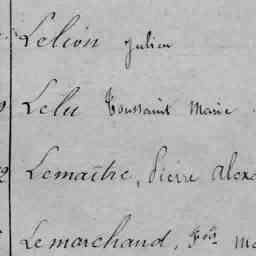 Lelion Julien
Lelu Toussaint Marie
Lemaître, Pierre Alex
Lemarchand, Fois Ma